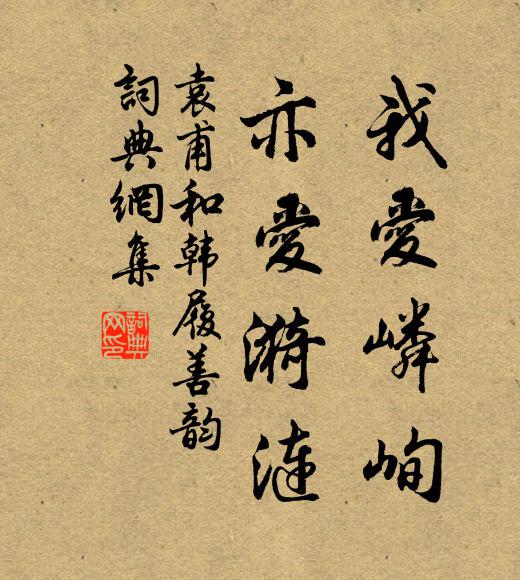 我愛嶙峋
亦愛漪漣
袁甫和韩履善韵
詞典網集
詞典
网印